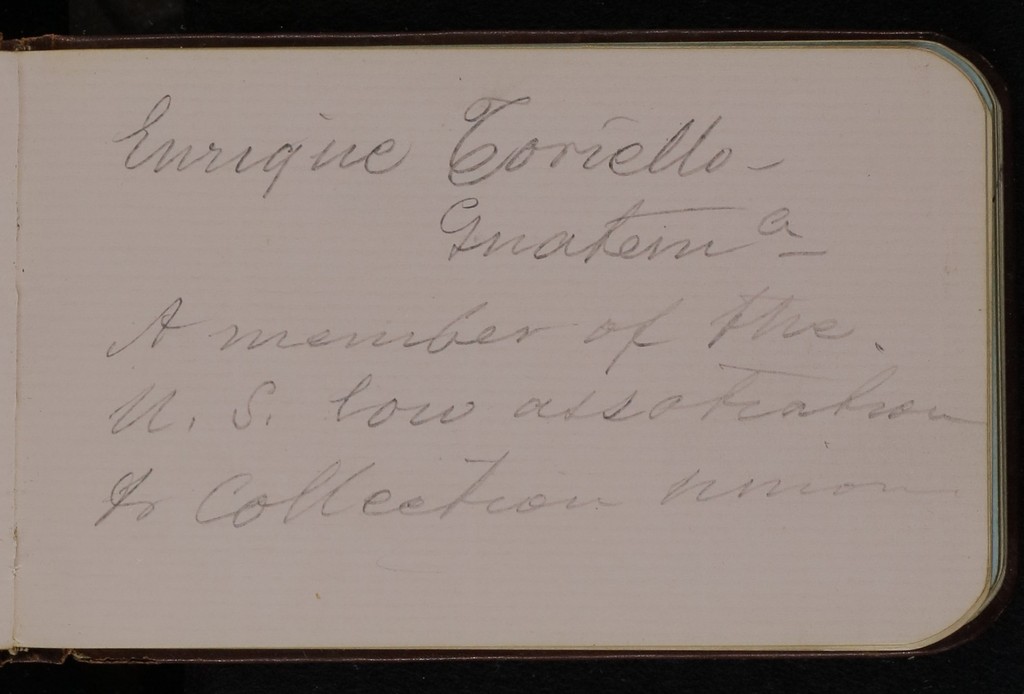 Enrique Toriello -
Guatem a
A member of the
U. S. low assotiation
& Collection union